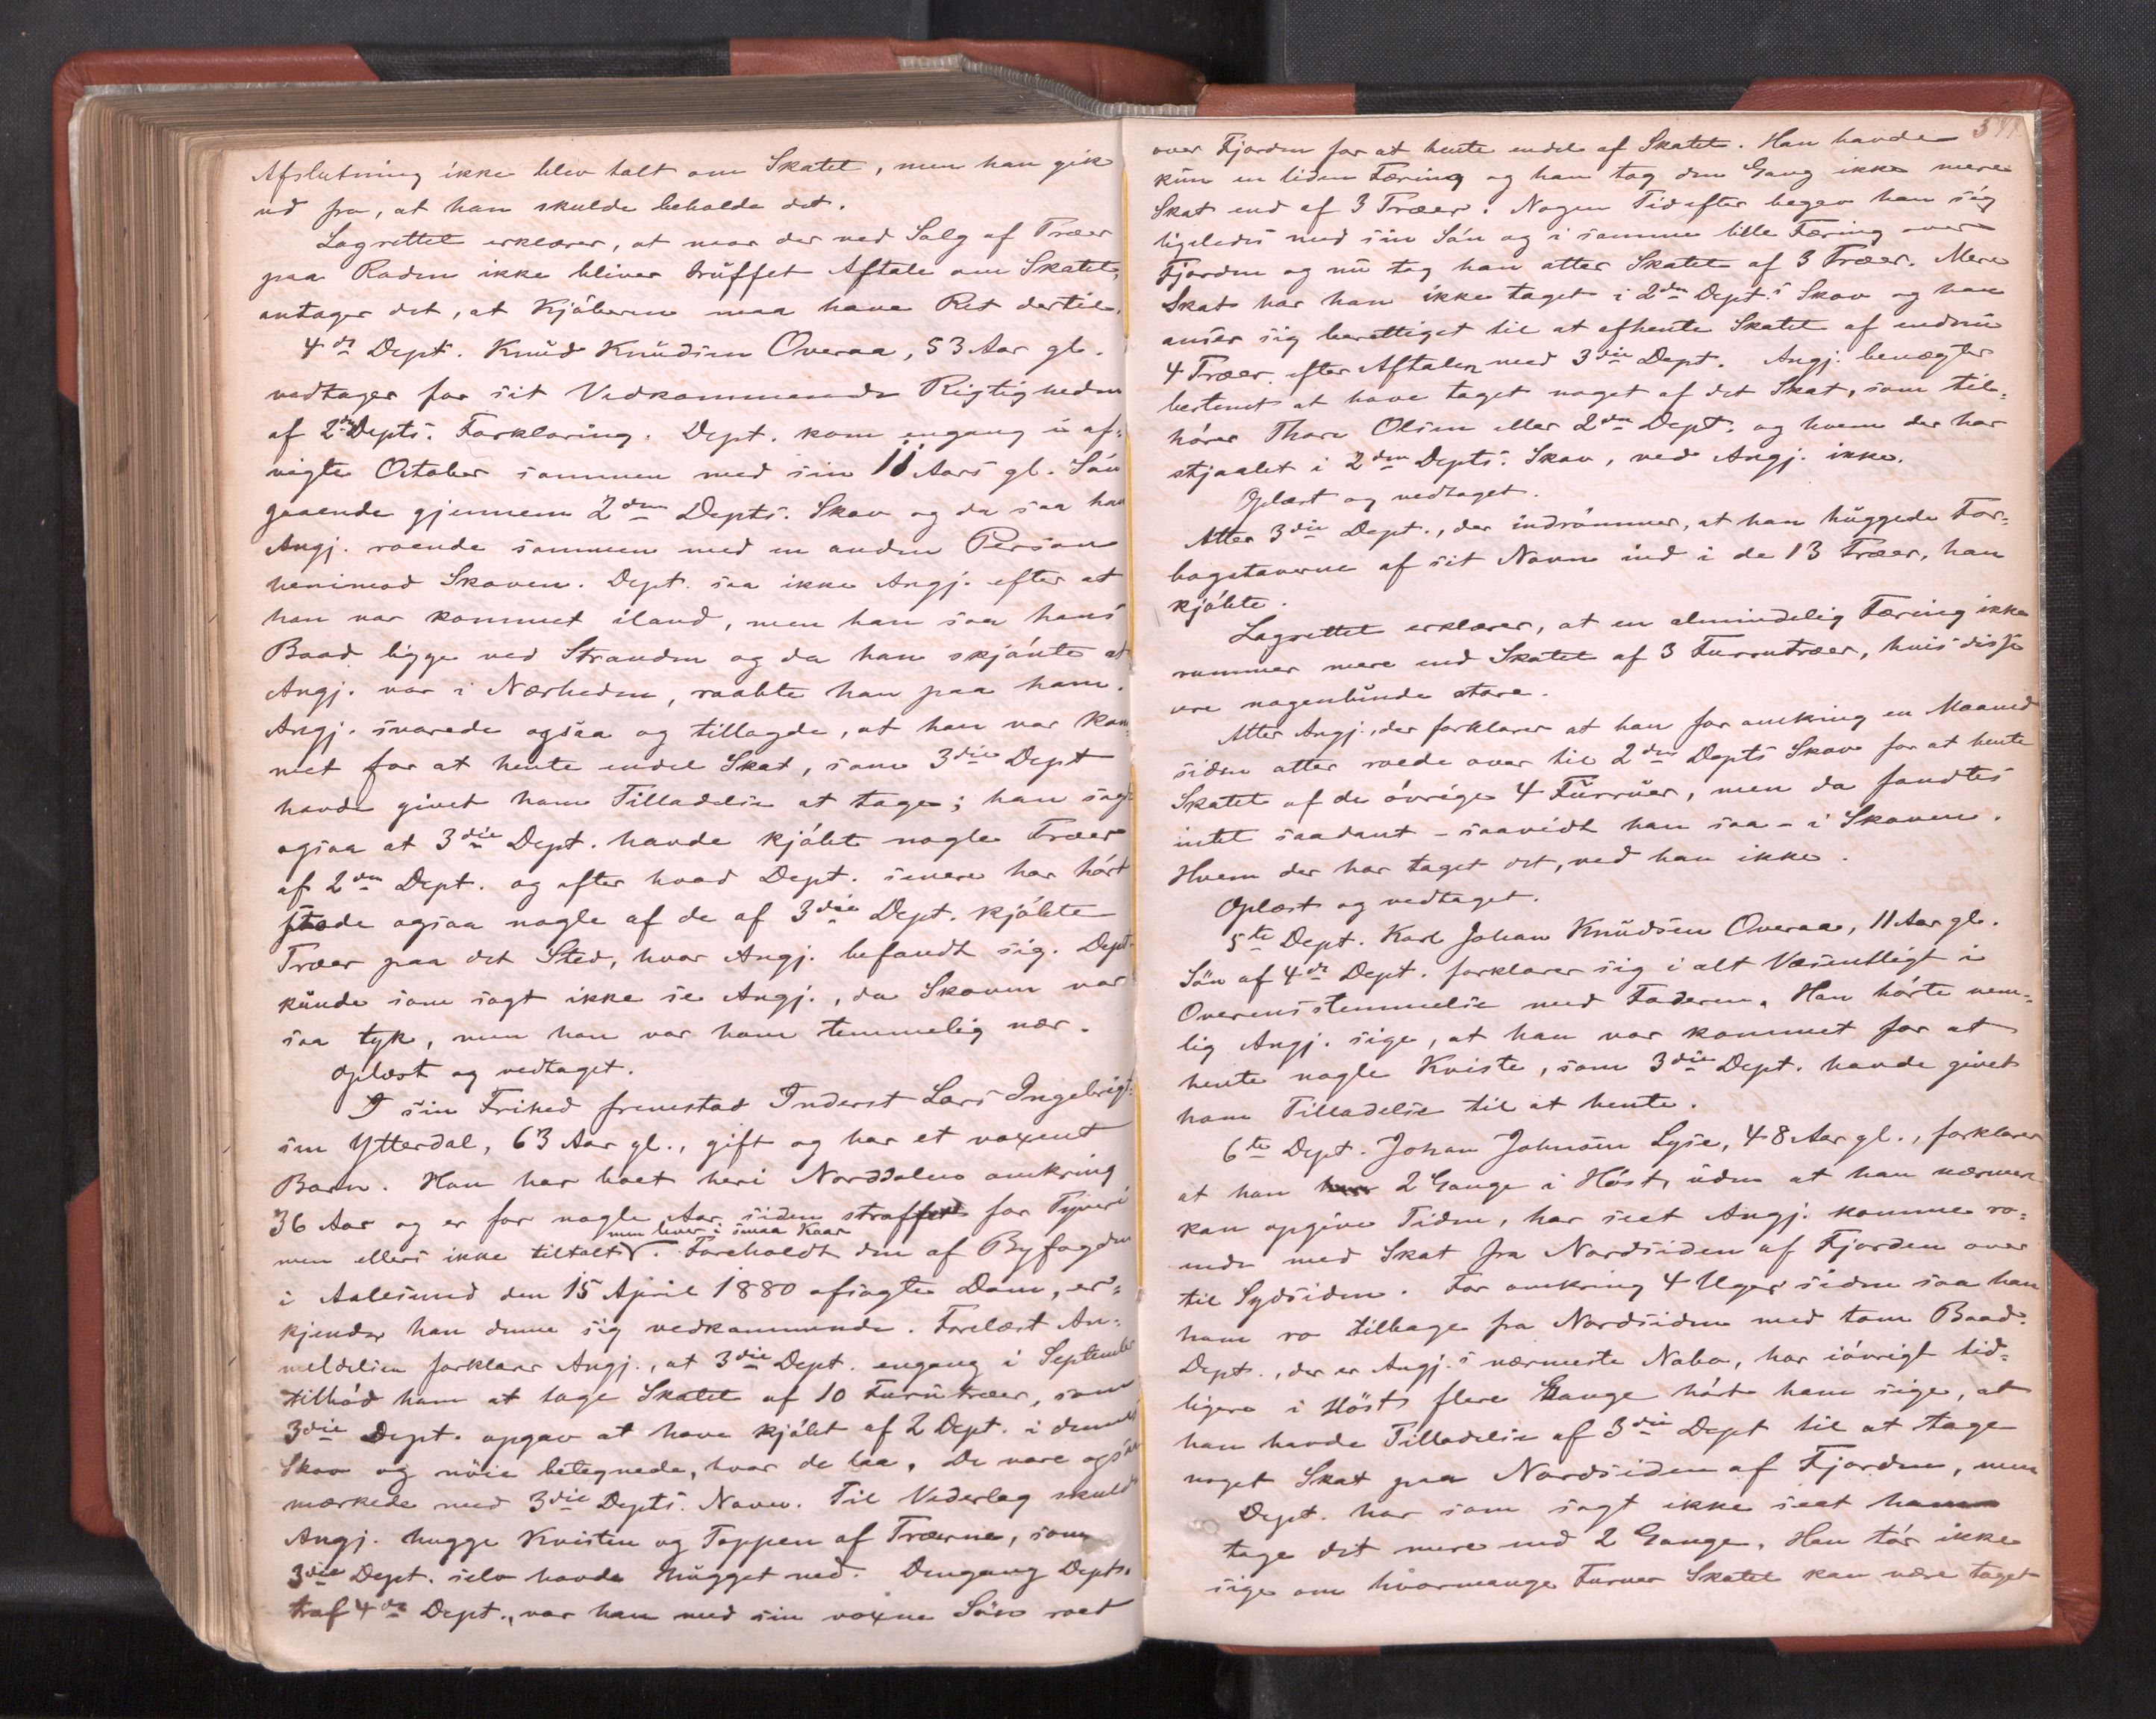 Afslutning ikke blev talt om Skatet, men han gik
ud fra, at han skulde beholde det.
Lagrettet erklærer, at naar der ved Salg af Træer
paa Roden ikke bliver truffet Aftale om Skatet,
antages det, at Kjøberen maa have Ret dertil.
4de Dept. Knud Knudsen Overaa, 53 Aar gl.
vedtager for sit Vedkommende Rigtigheden
af 2den Depts. Forklaring. Dept. kom engang i af-
vigte October sammen med sin 11 Aars gl. Søn
gaaende gjennem 2den Depts. Skov og da saa han
Angj. roende sammen med en anden Person
henimod Skoven. Dept. saa ikke Angj. efter at
han var kommet iland, men han saa hans
Baad ligge ved Stranden og da han skjønte at
Angj. var i Nærheden, raabte han paa ham.
Angj. svarede ogsaa og tillagde, at han var kom-
met for at hente endel Skat, som 3die Dept
havde givet ham Tilladelse at tage; han sag-
ogsaa at 3die Dept. havde kjøbt nogle Træer
af 2den Dept. og efter hvad Dept. senere har hørt
stode ogsaa nogle af de af 3die Dept. kjøbte
Træer paa det Sted, hvor Angj. befandt sig. Dept.
kunde som sagt ikke se Angj., da Skoven var
saa tyk, men han var ham temmelig nær.
Oplæst og vedtaget.
I sin Frihed fremstod Inderst Lars Ingebrigt-
sen Ytterdal, 63 Aar gl., gift og har et voxent
Barn. Han har boet heri Norddalen omkring
36 Aar og er for nogle Aar siden straffet for Tyveri
men lever i smaa Kaar
men ellers ikke tiltalt. Foreholdt den af Byfogden
i Aalesund den 15 April 1880 afsagte Dom, er-
kjender han denne sig vedkommende. Forelæst An-
meldelsen forklarer Angj., at 3die Dept. engang i September
tilbød ham at tage Skatet af 10 Furutræer, som
3die Dept. opgav at have kjøbt af 2 Dept. i dennes
Skov og nøie betegnede, hvor de laa. De vare ogsaa
mærkede med 3die Depts. Navn. Til Vederlag skulde
Angj. hugge Kvisten og Toppen af Træerne, som
3die Dept. selv havde hugget ned. Dengang Depts.
traf 4de Dept., var han med sin voxne Søn roet
341
over Fjorden for at hente endel af Skatet. Han havde
kun en liden Færing og han tog den Gang ikke mere
Skat end af 3 Træer. Nogen Tid efter begav han sig
ligeledes med sin Søn og i samme lille Færing over
Fjorden og nu tog han atter Skatet af 3 Træer. Mere
Skat har han ikke taget i 2den Dept.s Skov og han
anser sig berettiget til at afhente Skatet af endnu
4 Træer efter Aftalen med 3die Dept. Angj. benægter
bestemt at have taget noget af det Skat, som til-
hører Thore Olsen eller 2den Dept. og hvem der har
stjaalet i 2den Depts. Skov, ved Angj. ikke.
Oplæst og vedtaget.
Atter 3die Dept., der indrømmer, at han huggede For-
bogstaverne af sit Navn ind i de 13 Træer, han
kjøbte.
Lagrettet erklærer, at en almindelig Færing ikke
rummer mere end Skatet af 3 Furrutræer, hvis disse
ere nogenlunde store.
Atter Angj., der forklarer at han for omkring en Maaned
siden atter roede over til 2den Depts Skov for at hente
Skatet af de øvrige 4 Furruer, men da fandtes
intet saadant - saavidt han saa - i Skoven.
Hvem der har taget det, ved han ikke.
Oplæst og vedtaget.
5te Dept. Karl Johan Knudsen Overaa, 11 Aar gl.
Søn af 4de Dept. forklarer sig i alt Væsentligt i
Overensstemmelse med Faderen. Han hørte nem-
lig Angj. sige, at han var kommet for at
hente nogle Kviste, som 3die Dept. havde givet
ham Tilladelse til at hente.
6te Dept. Johan Johnsen Lyse, 48 Aar gl., forklarer
at han 2 Gange i Høst, uden at han nærmere
kan opgive Tiden, har seet Angj. komme ro-
ende med Skat fra Nordsiden af Fjorden over
til Sydsiden. For omkring 4 Uger siden saa han
ham ro tilbage fra Nordsiden med tom Baad.
Dept., der er Angj.s nærmeste Nabo, har iøvrigt tid-
ligere i Høst flere Gange hørt ham sige, at
han havde Tilladelse af 3die Dept til at tage
noget Skat paa Nordsiden af Fjorden, men
Dept. har som sagt ikke seet ham
tage det mere end 2 Gange. Han tør ikke
sige om hvormange Furuer Skatet kan være taget